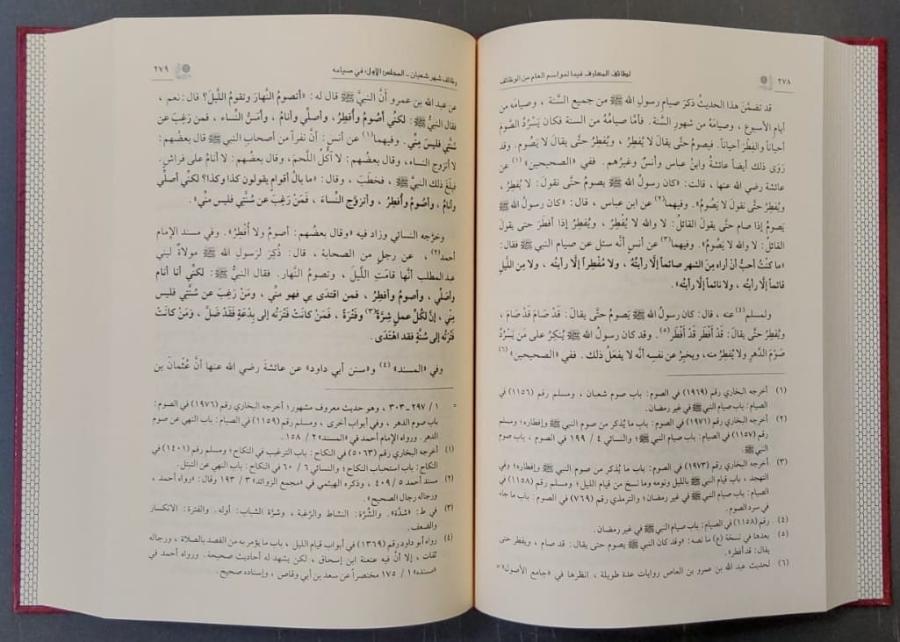 ٢٧٨
لطائف المعارف فيما لمواسم العام من الوظائف
قد تضمّنَ هذا الحديثُ ذكرَ صيام رسولِ الله ﷺ من جميع السَّنة ، وصيامَه من
أيام الأسبوع ، وصيامَهُ من شهورِ السَّنة. فأمَّا صيامُه من السنة فكان يَسْرُدُ الصَّومَ
أحياناً والفِطرَ أحياناً. فيصومُ حتَّى يقالَ لا يُفْطِرُ ، ويُفْطِرُ حتَّى يقالَ لا يَصُومُ. وقد
رَوَى ذلك أيضاً عائشةُ وابنُ عباس وأنسٌ وغيرُهم. ففي «الصحيحين»(١) عن
عائشة رضي الله عنها ، قالت: «كان رسولُ اللهِ ﷺ يصومُ حتَّى نقولَ: لا يُفْطِرُ ،
ويُفْطِرُ حتَّى نقولَ لا يَصُومُ». وفيهما(٢) عن ابن عباس ، قال: «كان رسولُ الله ﷺ
يَصُومُ إذا صام حتَّى يقولَ القائلُ: لا والله لا يُفْطِرُ ، ويُفْطِرُ إذا أفطرَ حتى يقولَ
القائلُ: لا والله لا يَصُومُ». وفيهما(٣) عن أنَسٍ أنَّه سئل عن صيام النبي ﷺ فقال:
«ما كنتُ أحبُّ أنْ أراه مِنَ الشهر صائماً إلَّا رأيتُهُ ، ولا مُفْطِراً إلَّا رأيتُه ، ولا مِن اللَّيلِ
قائماً إلَّا رأيتُه ، ولا نائماً إلَّا رأيتُه».
ولمسلم(٤) عنه ، قال: كان رسولُ اللهِ ﷺ يصومُ حتَّى يقالَ: قَدْ صَامَ قَدْ صَامَ ،
ويُفْطِرُ حتَّى يقالَ: قَدْ أفطَرَ قَدْ أَفْطَرَ(٥). وقد كان رسولُ اللهِ ﷺ يُنْكِرُ على مَن يَسْرُدُ
صَوْمَ الدَّهرِ ولا يُفْطِرُ منه، ويخبِرُ عن نفسِه أنَّه لا يفعَلُ ذلك. ففي «الصحيحين»(٦)
(١) أخرجه البخاري رقم (١٩٦٩) في الصوم: باب صوم شعبان ، ومسلم رقم (١١٥٦) في
الصيام: باب صيام النبي ﷺ في غير رمضان.
(٢) أخرجه البخاري رقم (١٩٧١) في الصوم: باب ما يُذكر من صوم النبي ﷺ وإفطاره؛ ومسلم
رقم (١١٥٧) في الصيام: باب صيام النبي ﷺ؛ والنسائي ٤ / ١٩٩ في الصوم ، باب صوم
النبي ﷺ.
(٣) أخرجه البخاري رقم (١٩٧٣) في الصوم: باب ما يُذكر من صوم النبي ﷺ وإفطاره؛ وفي
التهجد ، باب قيام النبي ﷺ بالليل ونومه وما نسخ من قيام الليل؛ ومسلم رقم (١١٥٨) في
الصيام: باب صيام النبي ﷺ في غير رمضان؛ والترمذي رقم (٧٦٩) في الصوم: باب ما جاء
في سرد الصوم.
(٤) رقم (١١٥٨) في الصيام: باب صيام النبي ﷺ في غير رمضان.
(٥) بعدها في نسخة (ع) ما نصه: «وقد كان النبي ﷺ يصوم حتى يقال: قد صام ، ويفطر حتى
يقال: قد أفطر».
(٦) لحديث عبد الله بن عمرو بن العاص روايات عدة طويلة ، انظرها في «جامع الأصول» =
وظائف شهر شعبان - المجلس الأول: في صيامه
٢٧٩
عن عبدِ الله بن عمرو أنَّ النبيَّ ﷺ قال له: «أتصومُ النَّهارَ وتقومُ اللَّيلَ؟ قال: نعم ،
فقال النبيُّ ﷺ: لكنِّي أصُومُ وأُفطِرُ ، وأصلِّي وأنامُ ، وأمَسُّ النساء ، فمن رَغِبَ عن
سُنَّتي فليس منِّي. وفيهما(١) عن أنس: أنَّ نفراً من أصحابِ النبي ﷺ قال بعضُهم:
لا أتزوج النساء، وقال بعضُهم: لا آكُلُ اللَّحمَ، وقال بعضُهم: لا أنامُ على فراشٍ.
فبلَغَ ذلك النبيَّ ﷺ ، فخطَبَ ، وقال: «ما بالُ أقوام يقولون كذا وكذا؟ لكنِّي أصلِّي
وأنامُ ، وأصُومُ وأُفطِرُ ، وأتزوَّج النِّساءَ ، فمَنْ رَغِبَ عن سُنَّتي فليسَ منِّي».
وخرَّجه النسائي وزاد فيه «وقال بعضُهم: أصومُ ولا أُفْطِرُ». وفي مسند الإمام
أحمد(٢) ، عن رجلٍ من الصحابة ، قال: ذُكِرَ لرَسولِ الله ﷺ مَولاةٌ لبني
عبد المطلب أنَّها قامَتِ اللَّيلَ ، وتصومُ النَّهار. فقال النبيُّ ﷺ: لكنِّي أنا أنام
وأصَلِّي ، وأصومُ وأُفطِرُ ، فمن اقتدَى بي فهو منِّي ، ومَنْ رَغِبَ عن سُنَّتي فليس
مِنِّي ، إنَّ لكُلِّ عملٍ شِرَّةً(٣) وفَتْرَةً ، فمَنْ كانَتْ فَتْرَتُه إلى بِدعَةٍ فَقَدْ ضَلَّ ، ومَنْ كانَتْ
فَتْرَتُه إلى سُنَّةٍ فقد اهْتَدَى.
وفي «المسند»(٤) و«سنن أبي داود» عن عائشةَ رضي الله عنها أنَّ عُثْمانَ بن
= ١ / ٢٩٧ـ٣٠٣ ، وهو حديث معروف مشهور؛ أخرجه البخاري رقم (١٩٧٦) في الصوم:
باب صوم الدهر ، وفي أبواب أخرى ، ومسلم رقم (١١٥٩) في الصيام: باب النهي عن صوم
الدهر. ورواه الإمام أحمد في «المسند» ٢ / ١٥٨.
(١) أخرجه البخاري رقم (٥٠٦٣) في النكاح: باب الترغيب في النكاح؛ ومسلم رقم (١٤٠١) في
النكاح: باب استحباب النكاح؛ والنسائي ٦ / ٦٠ في النكاح: باب النهي عن التبتل.
(٢) مسند أحمد ٥ / ٤٠٩ ، وذكره الهيثمي في «مجمع الزوائد» ٣ / ١٩٣ وقال: «رواه أحمد ،
ورجاله رجال الصحيح».
(٣) في ط: «شدَّة». والشِّرَّة: النشاط والرَّغبة ، وشِرَّة الشباب: أوله. والفترة: الانكسار
والضعف.
(٤) رواه أبو داود رقم (١٣٦٩) في أبواب قيام الليل ، باب ما يؤمر به من القصد بالصلاة ، ورجاله
ثقات ، إلَّا أنَّ فيه عنعنة ابن إسحاق ، لكن يشهد له أحاديث صحيحة. ورواه أحمد في
«مسنده» ١ / ١٧٥ مختصراً عن سعد بن أبي وقاص ، وإسناده صحيح.